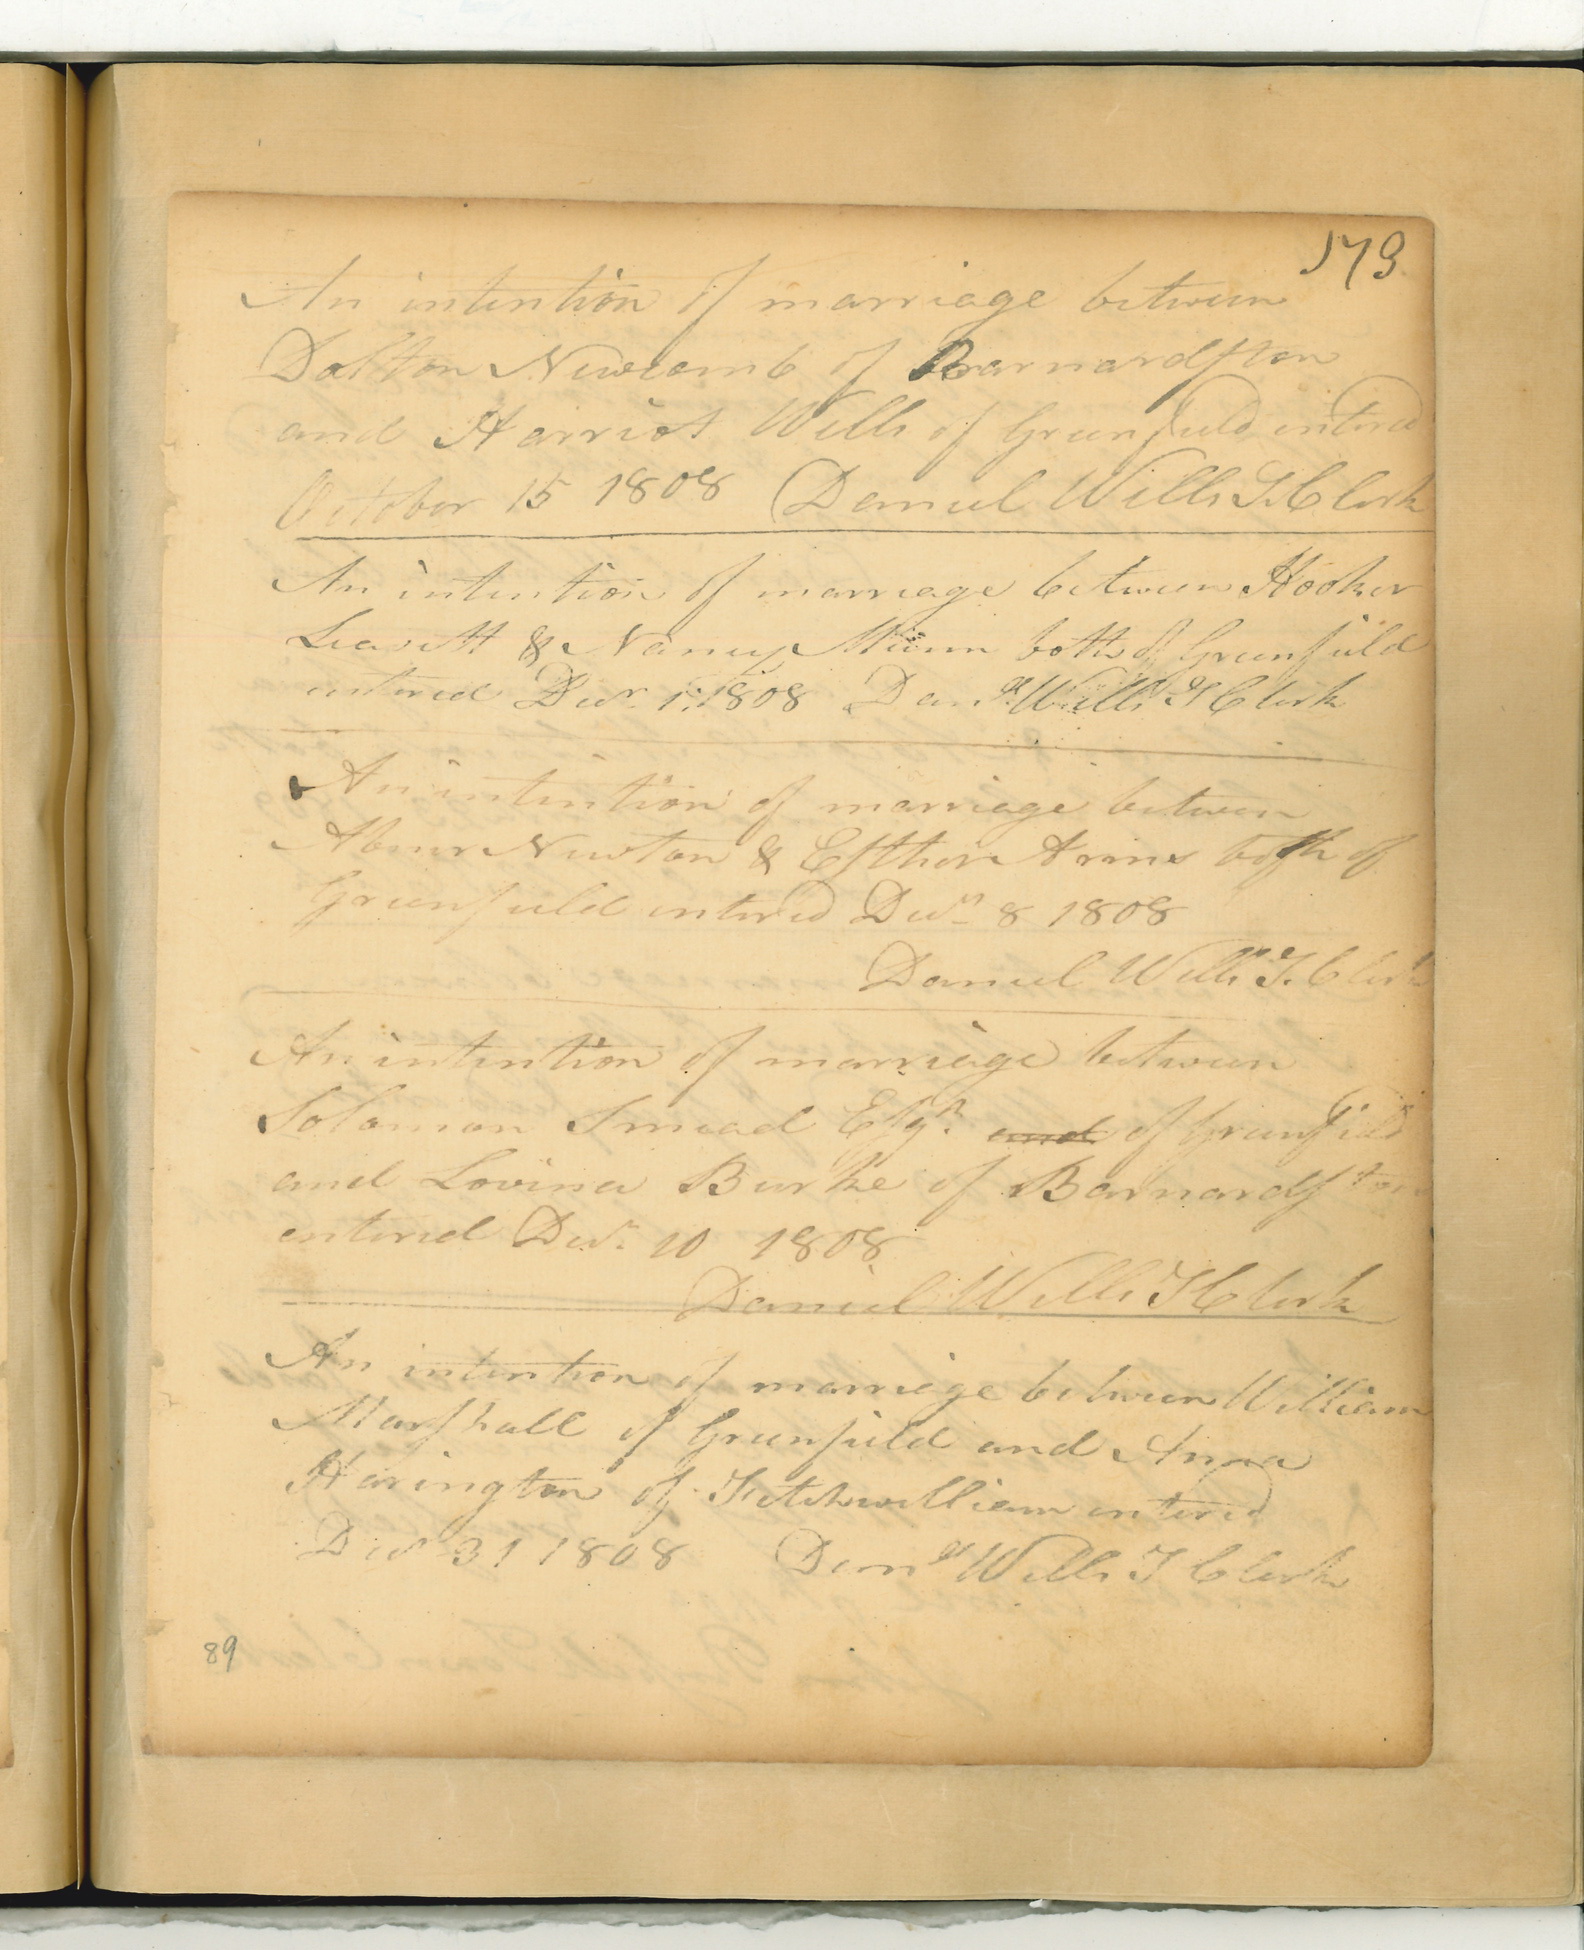 173
An intention of marriage between
Dalton Newcomb of Barnardston
and Harriot Wells of Greenfield entered
October 15 1808 Daniel Wells T. Clerk
An intention of marriage between Hooker
Leavitt & Nancy Munn both of Greenfield
entered Decr. 1. 1808 Danll. Wells T Clerk
An intention of marriage between
Abner Newton & Esther Arms both of
Greenfield entered Decr 8 1808
Daniel Wells T. Clerk
An intention of marriage between
Solomon Smead Esqr. and of Greenfield
and Lovina Burke of Barnardston
entered Decr. 10 1808
Daniel Wells T Clerk
An intention of marriage between William
Marshall of Greenfield and Anna
Harington of Fitchwilliam entered
Decr 31 1808 Danll Wells T Clerk
89